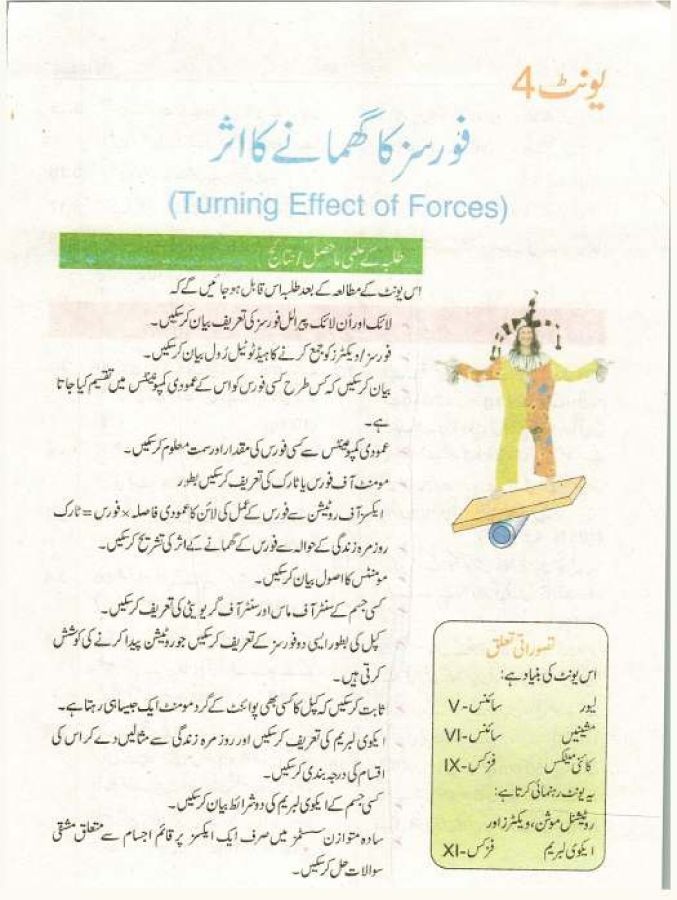 یونٹ 4
فورسز کا گھمانے کا اثر
(Turning Effect of Forces)
طلبہ کے علمی ماحصل/نتائج
اس یونٹ کے مطالعہ کے بعد طلبہ اس قابل ہو جائیں گے کہ
لائک اور اَن لائک پیرالل فورسز کی تعریف بیان کرسکیں۔
فورسز/ویکٹرز کو جمع کرنے کا ہیڈ ٹو ٹیل رُول بیان کرسکیں۔
بیان کرسکیں کہ کس طرح کسی فورس کو اس کے عمودی کمپونینٹس میں تقسیم کیا جاتا
ہے۔
عمودی کمپونینٹس سے کسی فورس کی مقدار اور سمت معلوم کرسکیں۔
مومنٹ آف فورس یا ٹارک کی تعریف کرسکیں بطور
ایکسز آف روٹیشن سے فورس کے عمل کی لائن کا عمودی فاصلہ × فورس = ٹارک
روزمرہ زندگی کے حوالہ سے فورس کے گھمانے کے اثر کی تشریح کرسکیں۔
مومنٹس کا اصول بیان کرسکیں۔
کسی جسم کے سنٹر آف ماس اور سنٹر آف گریویٹی کی تعریف کرسکیں۔
کپل کی بطور ایسی دو فورسز کے تعریف کرسکیں جو روٹیشن پیدا کرنے کی کوشش
کرتی ہیں۔
ثابت کرسکیں کہ کپل کا کسی بھی پوائنٹ کے گرد مومنٹ ایک جیسا ہی رہتا ہے۔
ایکوی لبریم کی تعریف کرسکیں اور روزمرہ زندگی سے مثالیں دے کر اس کی
اقسام کی درجہ بندی کرسکیں۔
کسی جسم کے ایکوی لبریم کی دو شرائط بیان کرسکیں۔
سادہ متوازن سسٹمز میں صرف ایک ایکسز پر قائم اجسام سے متعلق مشقی
سوالات حل کرسکیں۔
تصوراتی تعلق
اس یونٹ کی بنیاد ہے:
لیور سائنس-V
مشینیں سائنس-VI
کائنی میٹکس فزکس-IX
یہ یونٹ رہنمائی کرتا ہے:
روٹیشنل موشن، ویکٹرز اور
ایکوی لبریم فزکس-XI